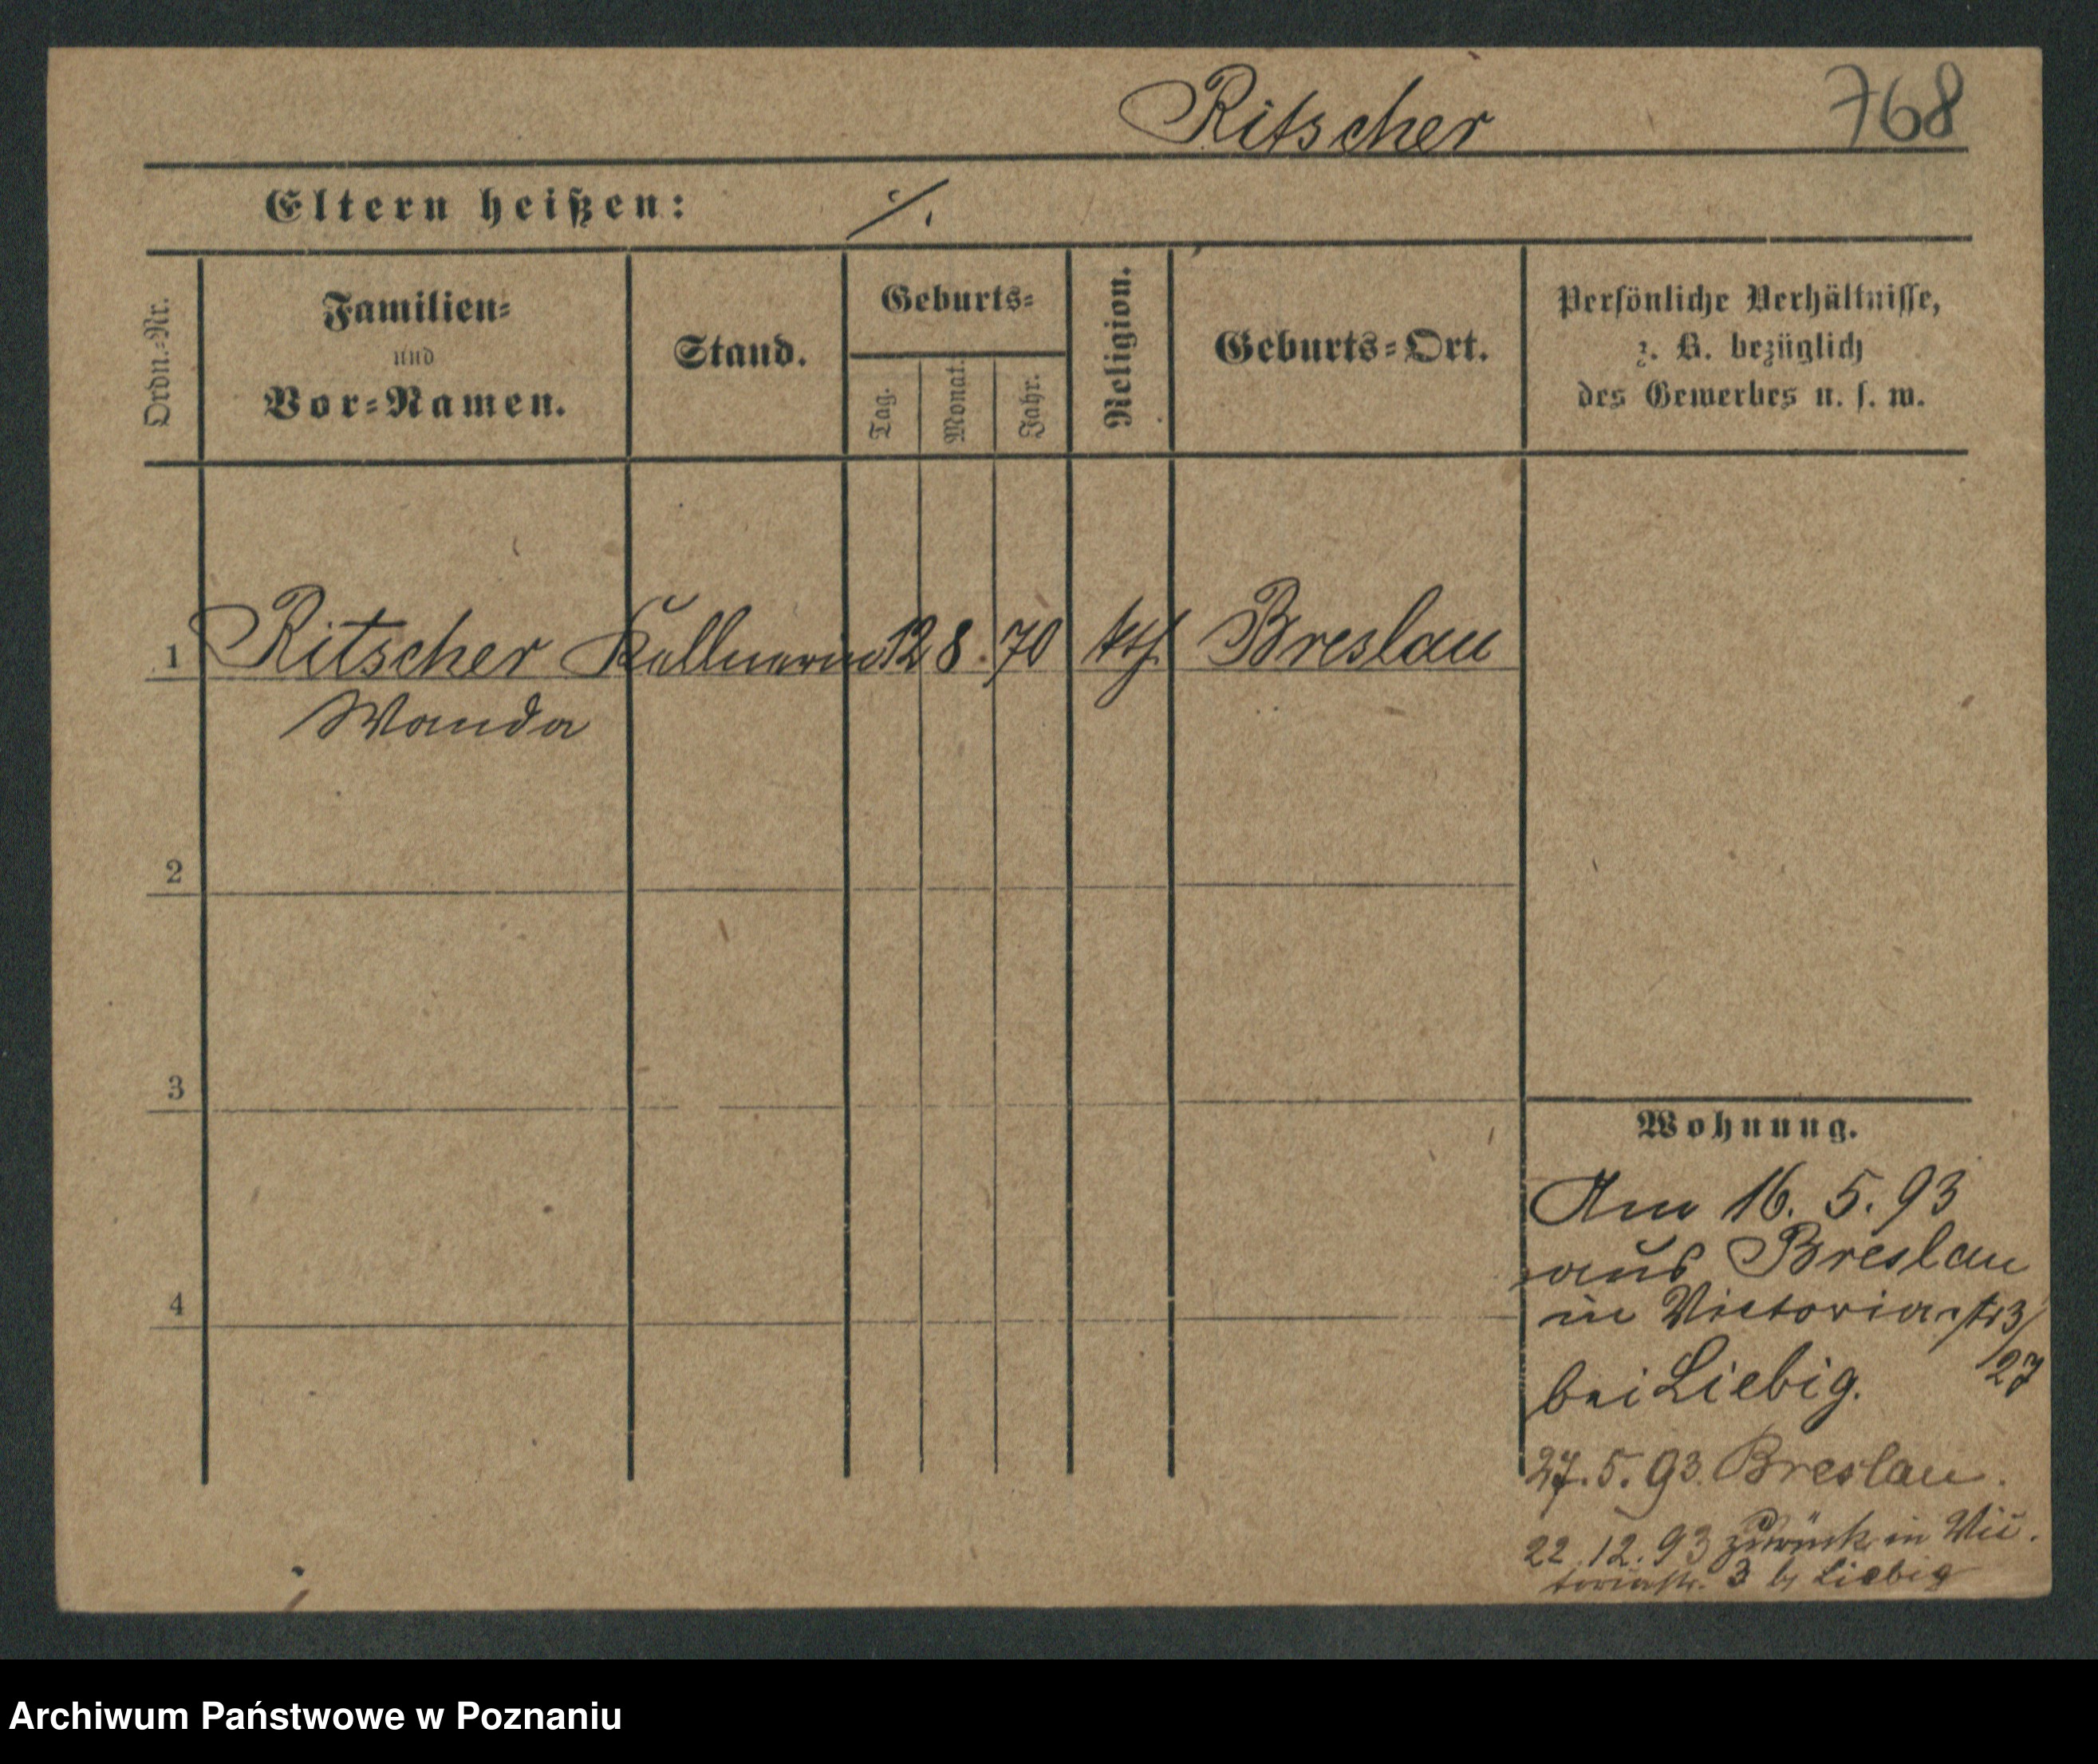 Ritscher 768
Eltern heißen: ./.
Ordn.-Nr.
Familien-
und
Vor-Namen.
Stand.
Geburts-
Tag.
Monat.
Jahr.
Religion.
Geburts-Ort.
Persönliche Verhältnisse,
z. B. bezüglich
des Gewerbes u. s. w.
1 Ritscher Kellnerin 12 8. 70 kth Breslau
Wanda
2
3
4
Wohnung.
Am 16. 5. 93
aus Breslau
in Victoriastr 3/
27
bei Liebig.
27. 5. 93. Breslau.
22. 12. 93 zurück in Vic.
toriastr. 3 b/ Liebig
Archiwum Państwowe w Poznaniu